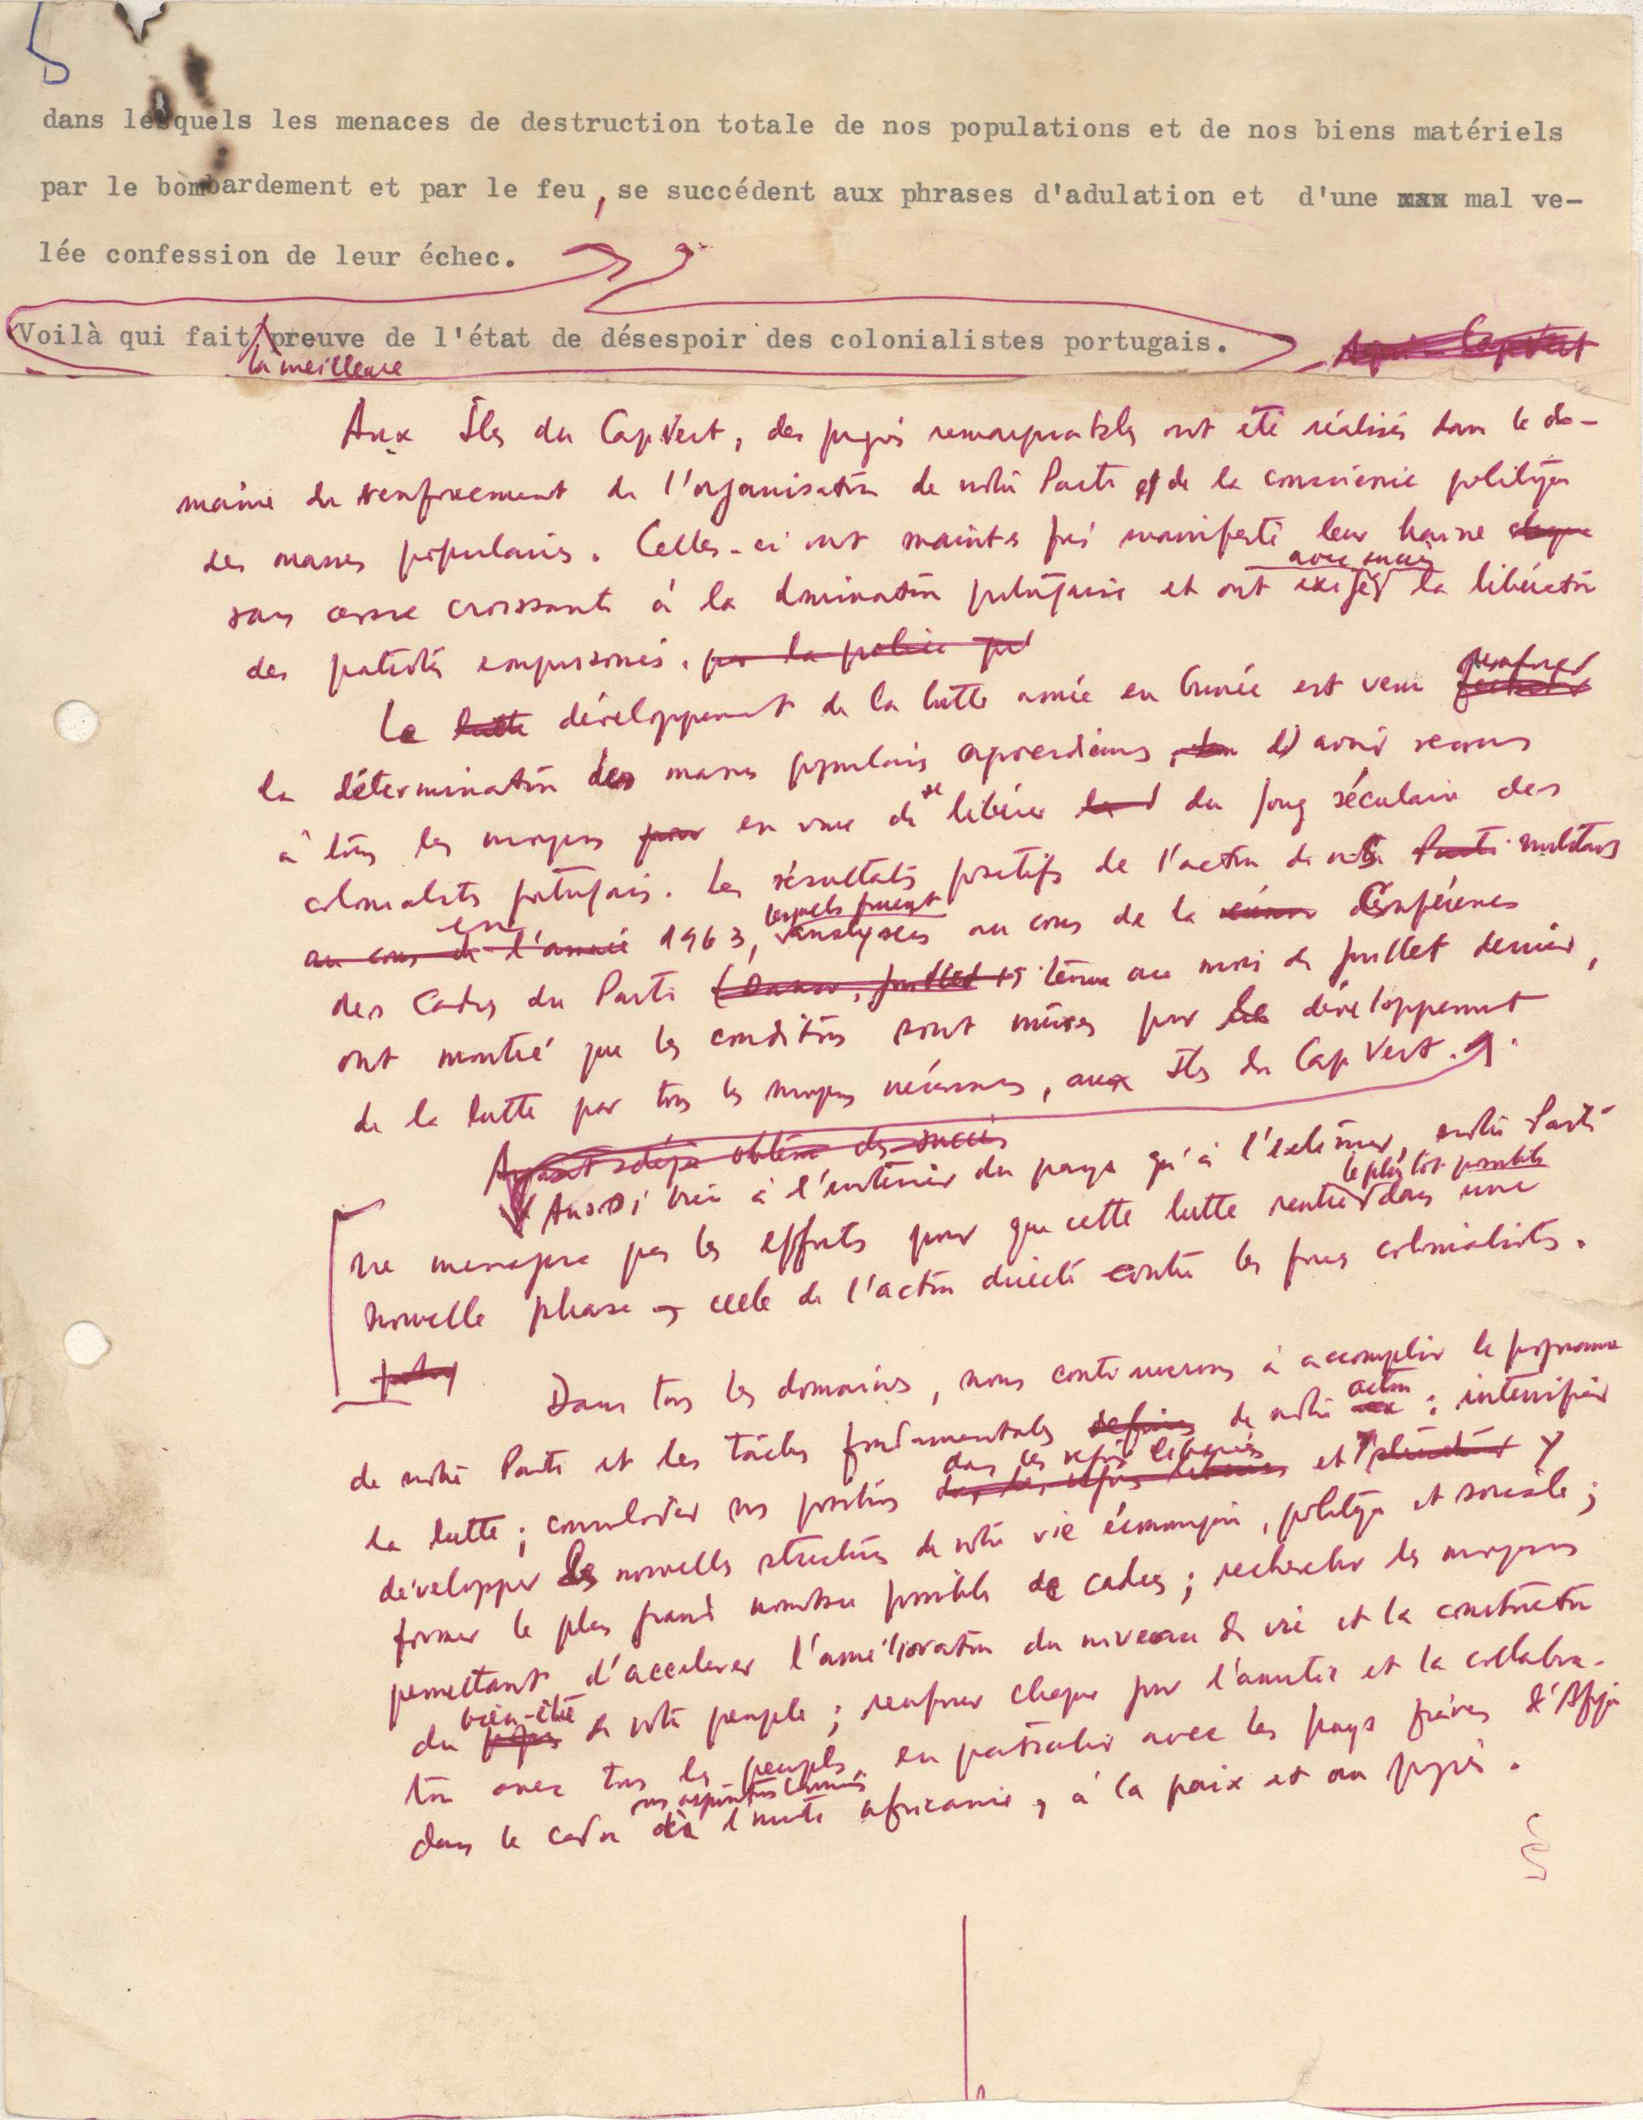 5
dans lesquels les menaces de destruction totale de nos populations et de nos biens matériels
par le bombardement et par le feu, se succédent aux phrases d'adulation et d'une xxx mal ve-
lée confession de leur échec.
Voilà qui fait preuve de l'état de désespoir des colonialistes portugais.
la meilleure
Aqui - Cap Vert
Aux Îles du Cap Vert, des progrès remarquables ont été réalisés dans le do-
maine du renforcement de l'organisation de notre Parti et de la conscience politique
des masses populaires. Celles-ci ont maintes fois manifesté leur haine
avec succès
sans cesse croissante à la domination portugaise et ont exigé la libération
des patriotes emprisonnés. par la police
renforcer
Le lutte développement de la lutte armée en Guinée est venu
la détermination des masses populaires capverdiennes, d'avoir recours
se
à tous les moyens pour en vue de libérer du joug séculaire des
colonialistes portugais. Les résultats positifs de l'action de nos Parti militants
en lesquels furent
au cours de l'année 1963, analysés au cours de la Conférence
des Cadres du Parti tenue au mois de juillet dernier,
ont montré que les conditions sont mûres pour le développement
de la lutte par tous les moyens nécessaires, aux Îles du Cap Vert.
Ayant déjà obtenu des succès
Aussi bien à l'intérieur du pays qu'à l'extérieur, notre Parti
le plus tôt possible
ne menagera pas les efforts pour que cette lutte rentre dans une
nouvelle phase - celle de l'action directe contre les forces colonialistes.
Dans tous les domaines, nous continuerons à accomplir le programme
action
de notre Parti et les tâches fondamentales définies de notre : intensifier
dans les régions libérées
la lutte; consolider nos positions dans les régions libérées et
développer les nouvelles structures de notre vie économique, politique et sociale;
former le plus grand nombre possible de cadres; rechercher les moyens
permettant d'accelerer l'amélioration du niveau de vie et la construction
bien-être
du progrès de notre peuple; renforcer chaque jour l'amitié et la collabora-
tion avec tous les peuples, en particulier avec les pays frères d'Afrique
nos aspirations communes
dans le cadre de l'unité africaine, à la paix et au progrès.